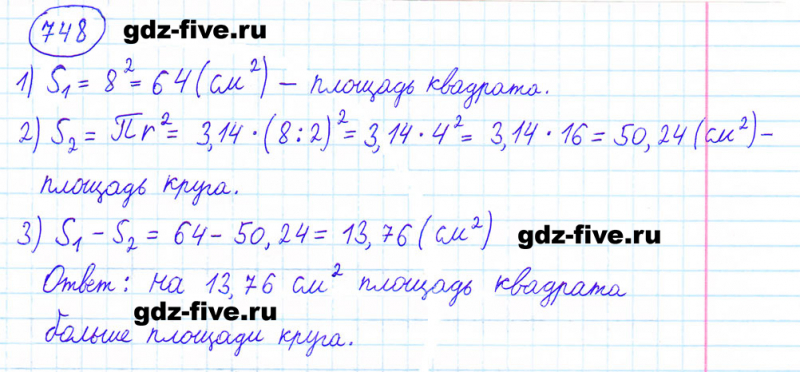 748 gdz-five.ru
1) S₁ = 8² = 64 (см²) – площадь квадрата.
2) S₂ = πr² = 3,14 · (8:2)² = 3,14 · 4² = 3,14 · 16 = 50,24 (см²) –
площадь круга.
3) S₁ – S₂ = 64 – 50,24 = 13,76 (см²) gdz-five.ru
Ответ: на 13,76 см² площадь квадрата
gdz-five.ru
больше площади круга.